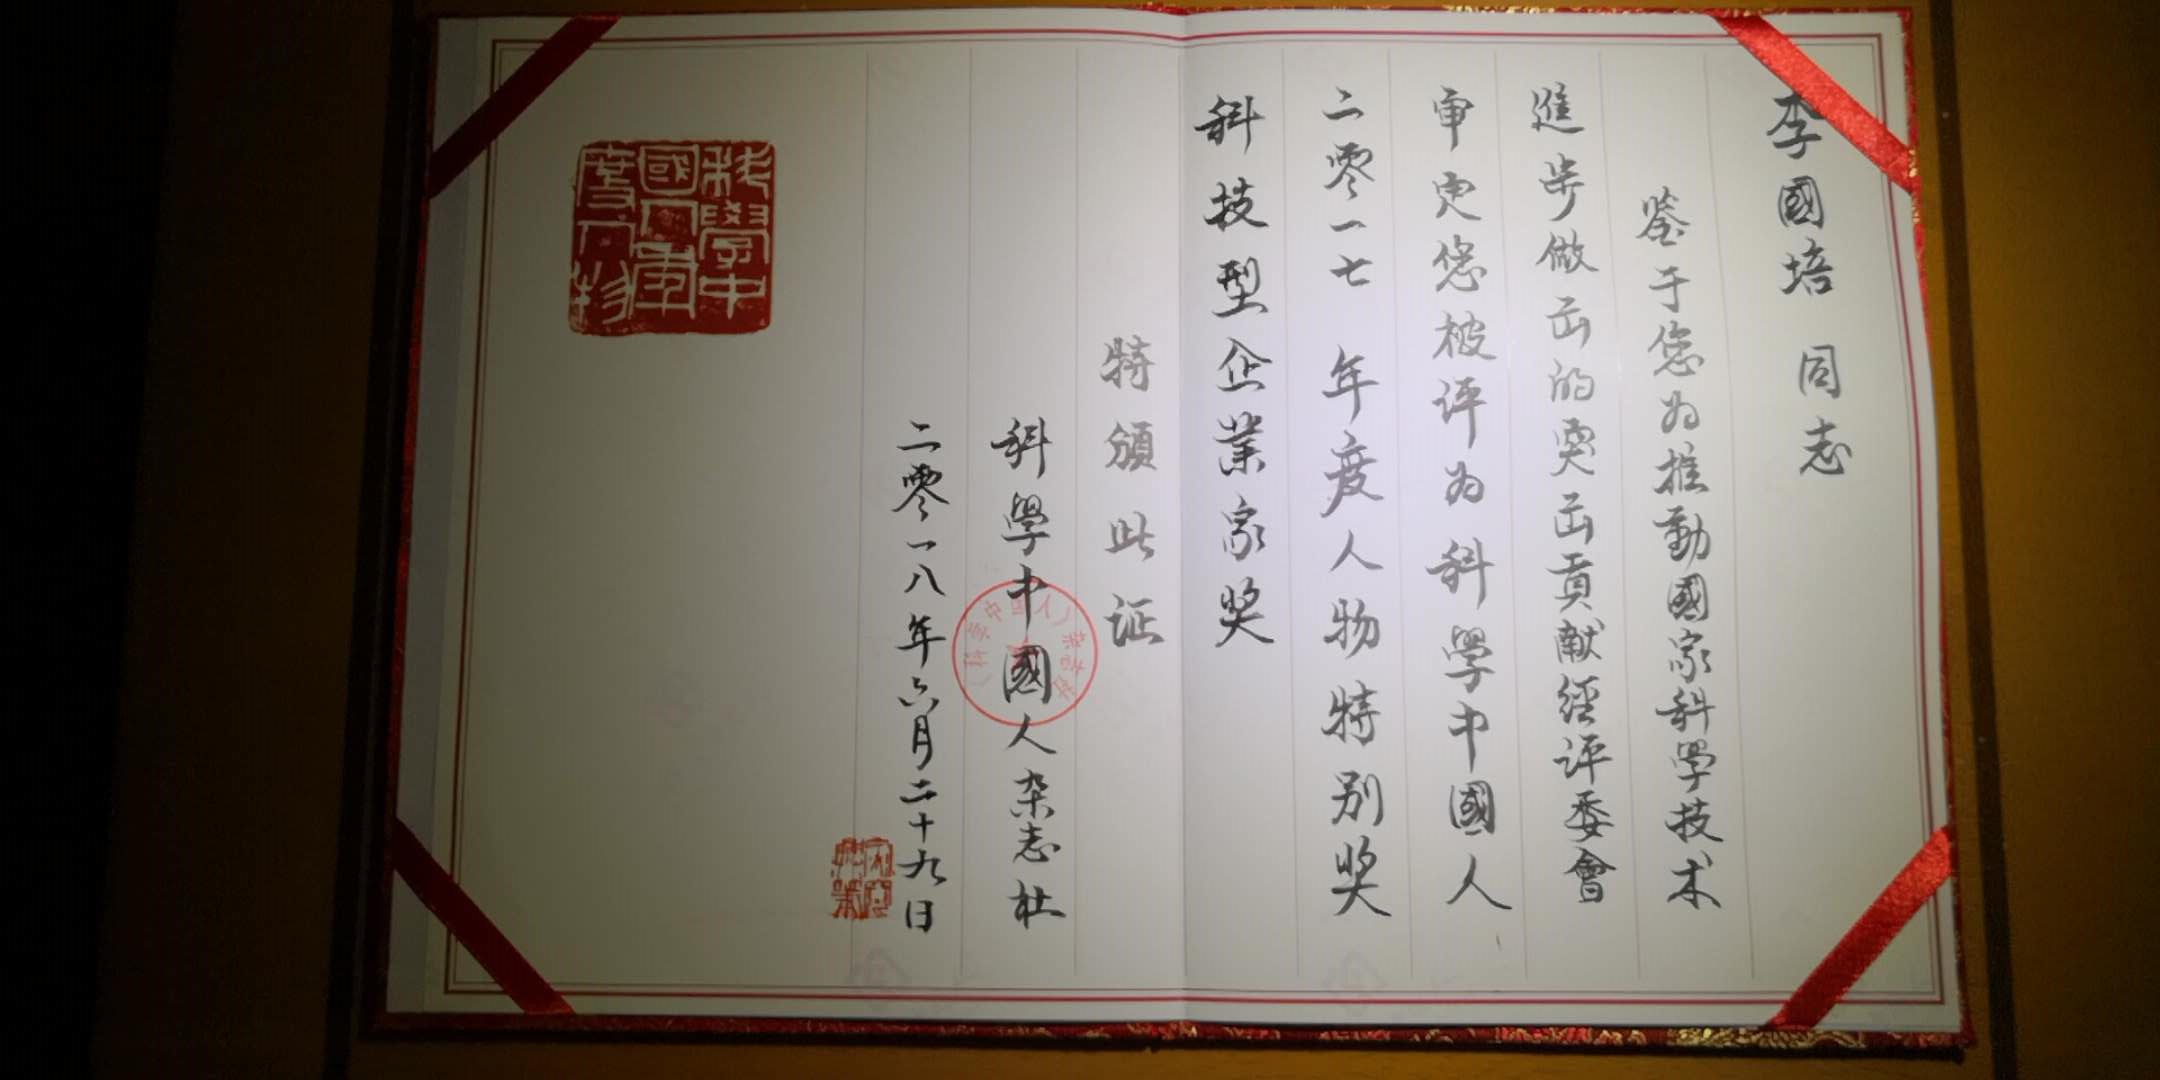 李國培 同志
鉴于您为推動國家科學技术
進步做出的突出貢献經评委會
审定您被评为科學中國人
二零一七 年度人物特别奖
科技型企業家奖
特頒此证
科學中國人杂志社
二零一八年六月二十九日
科學中國人年度人物